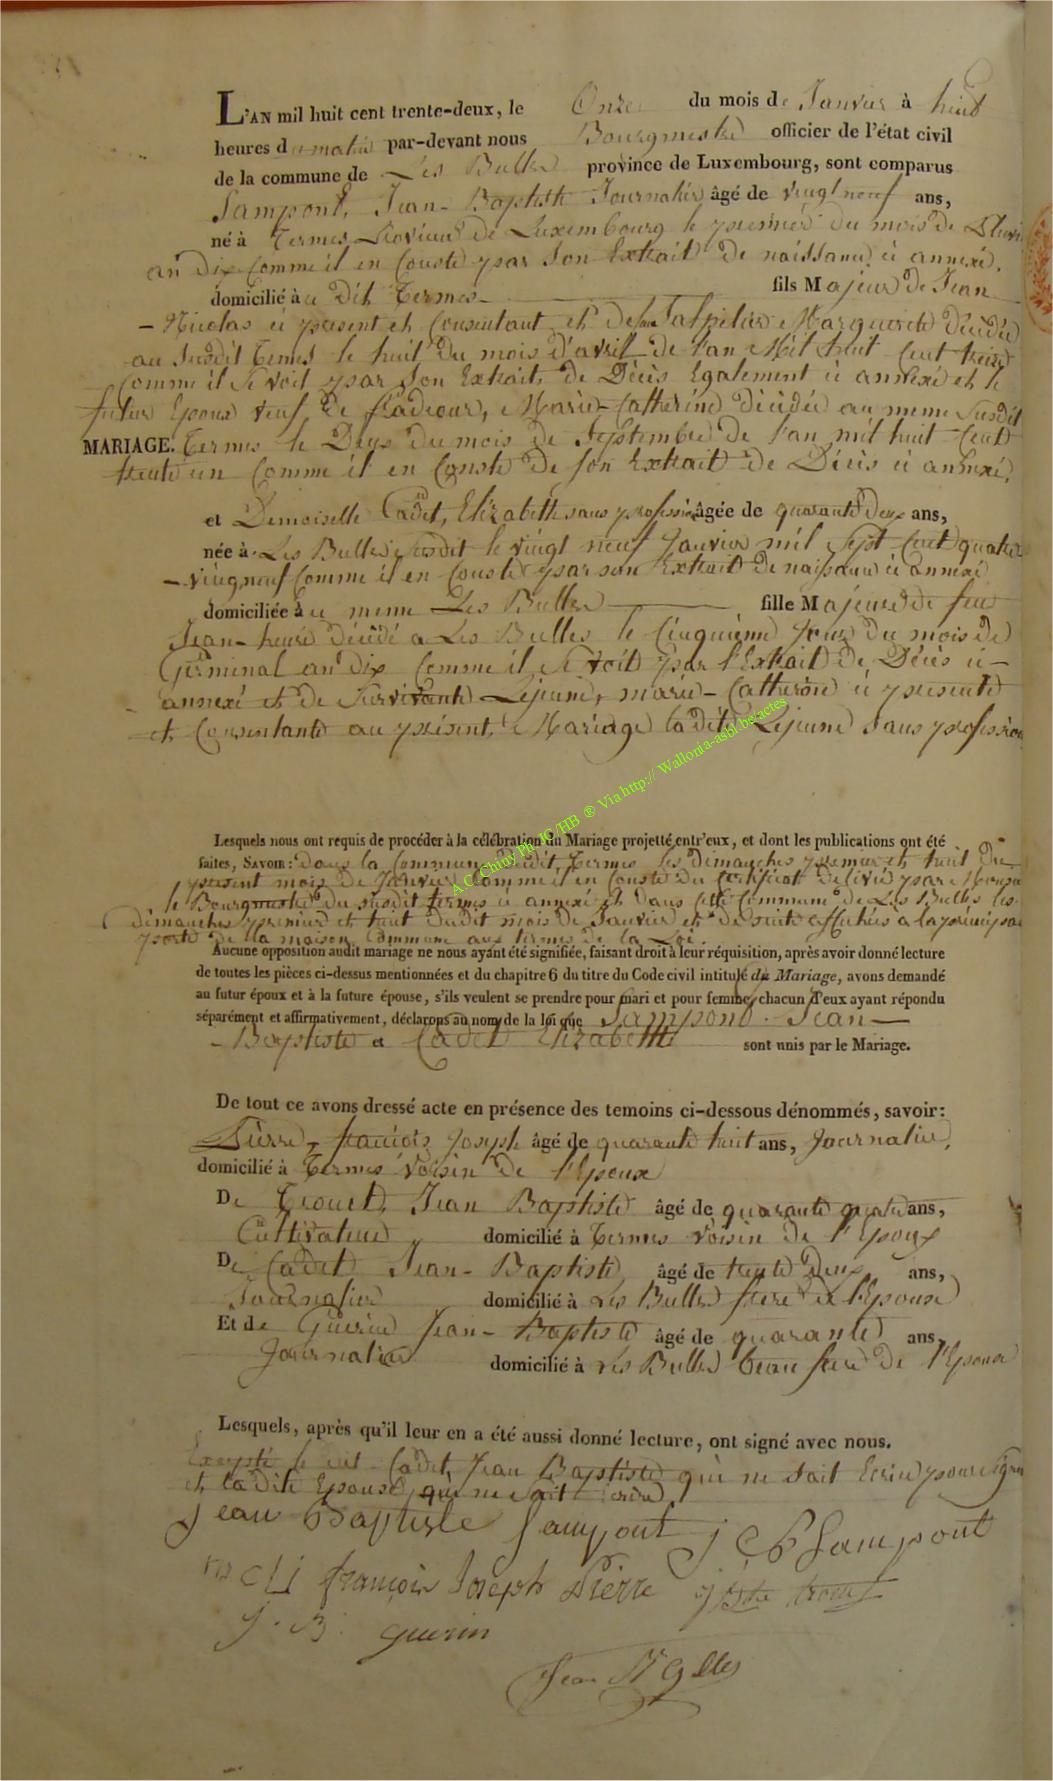 L'AN mil huit cent trente-deux, le Onze du mois de Janvier à huit
heures du matin par-devant nous Bourgmestre officier de l'état civil
de la commune de Les Bulles province de Luxembourg, sont comparus
Sampont, Jean-Baptiste Journalier âgé de vingt neuf ans,
né à Termes Province de Luxembourg le premier du mois de
an dix Comme il en Conste par son Extrait de naissance ci annexé.
domicilié à ce dit Termes fils Majeur de Jean
Nicolas ci present et Consentant et de Marguerite Décédée
au susdit Termes le huit du mois d'avril de l'an Mil huit Cent treize
Comme il se voit par son Extrait de Décès Egalement ci annexé et le
futur Epoux veuf de Marie-Catherine décédée au meme susdit
MARIAGE. Termes le Deux du mois de Septembre de l'an mil huit Cent
trente un Comme il en Conste de son Extrait de Décès ci annexé.
et Demoiselle Cadet, Elizabeth sans profession âgée de quarante Deux ans,
née à Les Bulles susdit le vingt neuf Janvier mil Sept Cent quatre
-vingneuf Comme il en Conste par son Extrait de naissance ci annexé
domiciliée à ce meme Les Bulles fille Majeure de feu
Jean-henri décédé a Les Bulles le Cinquième Jour du mois de
Germinal an dix Comme il se voit par l'Extrait de Décès ci-
annexé et de Survivante Lejeune, marie-Catherine ci presente
et Consentante au présent Mariage la dite Lejeune Sans profession
A.C. Chiny Ph. JC/HB ® Via http:// Wallonia-asbl.be/actes
Lesquels nous ont requis de procéder à la célébration du Mariage projetté entr'eux, et dont les publications ont été
faites, SAVOIR: Dans la Commune dudit Termes les dimanches premier et huit du
present mois de Janvier Comme il en Conste du Certificat delivré par
le Bourgmestre du susdit termes ci annexé et dans cette Commune de Les Bulles les
dimanches premier et huit dudit mois de Janvier et de suite affichées a la principale
porte de la maison Commune aux termes de la Loi.
Aucune opposition audit mariage ne nous ayant été signifiée, faisant droit à leur réquisition, après avoir donné lecture
de toutes les pièces ci-dessus mentionnées et du chapitre 6 du titre du Code civil intitulé du Mariage, avons demandé
au futur époux et à la future épouse, s'ils veulent se prendre pour mari et pour femme, chacun d'eux ayant répondu
séparément et affirmativement, déclarons au nom de la loi que Sampont Jean-
Baptiste et Cadet Elizabeth sont unis par le Mariage.
De tout ce avons dressé acte en présence des temoins ci-dessous dénommés, savoir:
Pierre, françois Joseph âgé de quarante huit ans, Journalier,
domicilié à Termes voisin de l'Epoux
De Trouet, Jean Baptiste âgé de quarante quatre ans,
Cultivateur domicilié à Termes voisin de l'Epoux
De Cadet Jean-Baptiste, âgé de trente Deux ans,
Journalier domicilié à Les Bulles frere de l'Epouse
Et de Guerin Jean-Baptiste âgé de quarante ans,
Journalier domicilié à Les Bulles beau frere de l'Epouse
Lesquels, après qu'il leur en a été aussi donné lecture, ont signé avec nous.
Excepté le dit Cadet, Jean Baptiste qui ne sait Ecrire pour signer
et la dite Epouse qui ne sait écrire
Jean Baptiste Sampont J Sampont
françois Joseph Pierre
J. B. Guerin